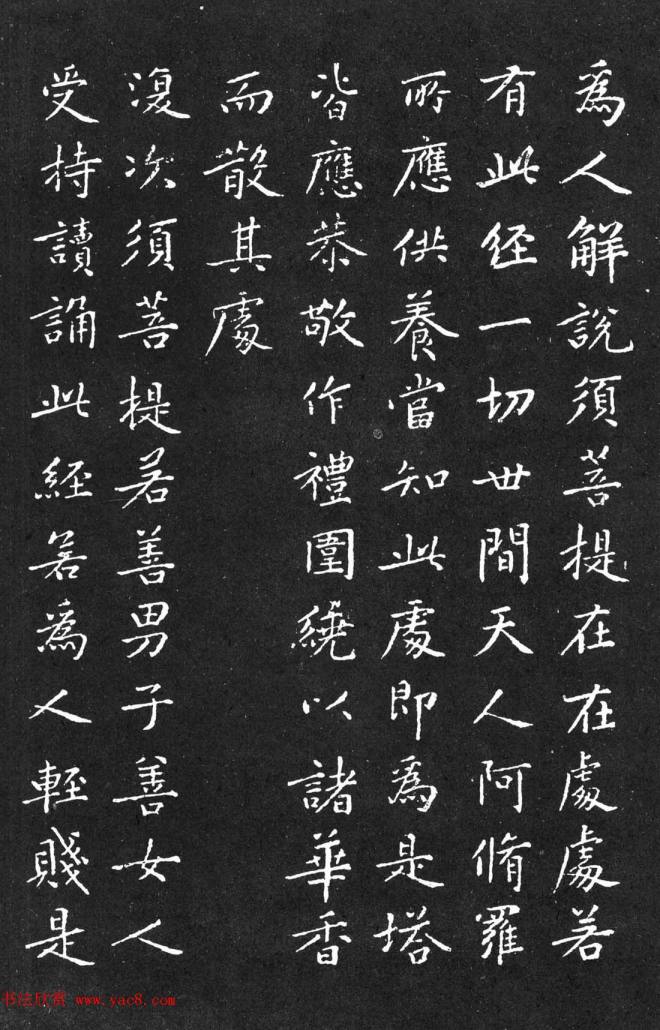 為人解說須菩提在在處處若
有此経一切世間天人阿脩羅
所應供養當知此處即為是塔
皆應恭敬作禮圍繞以諸華香
而散其處
復次須菩提若善男子善女人
受持讀誦此経若為人輕賤是
书法欣赏 www.yac8.com